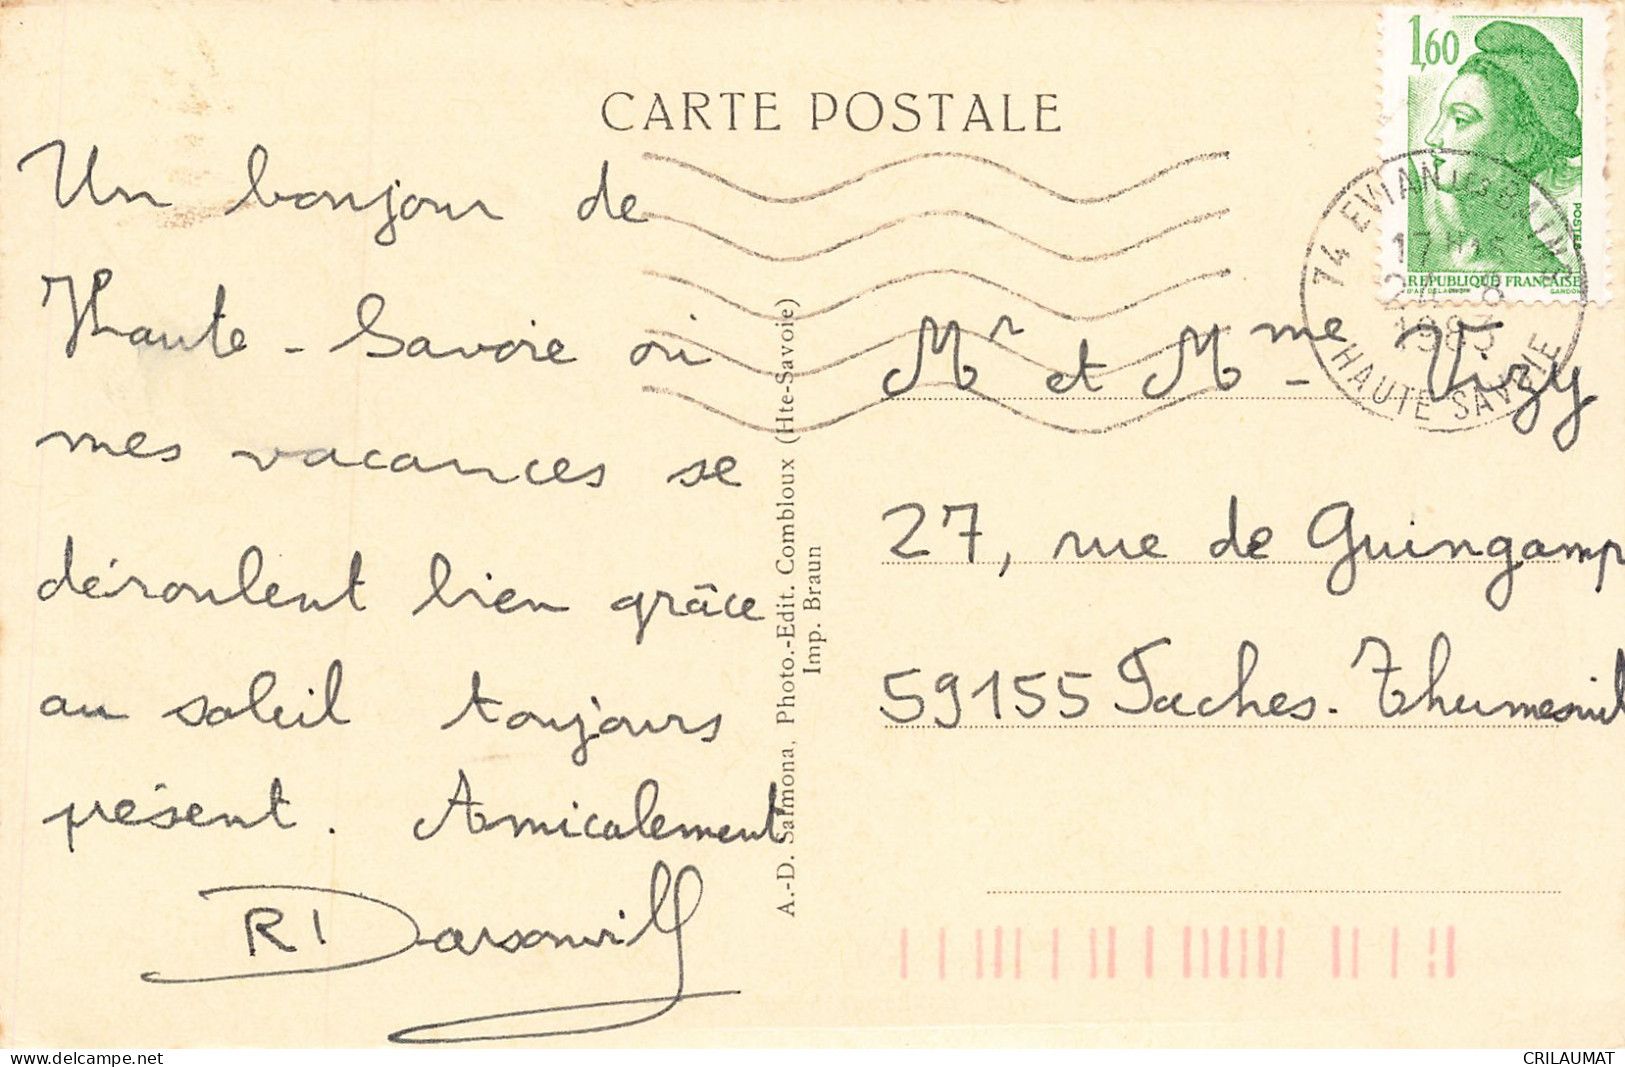 CARTE POSTALE
1,60
POSTES
REPUBLIQUE FRANÇAISE
D'AP. DELACROIX GANDON
74 EVIAN LES BAINS
17 H 15
24 - 8
1983
HAUTE SAVOIE
Un bonjour de
Haute - Savoie où
mes vacances se
déroulent bien grâce
au soleil toujours
présent. Amicalement
A.-D. Salmona, Photo.-Edit. Combloux (Hte-Savoie)
Imp. Braun
Mr et Mme Vizy
27, rue de Guingamp
59155 Faches-Thumesnil
CRILAUMAT